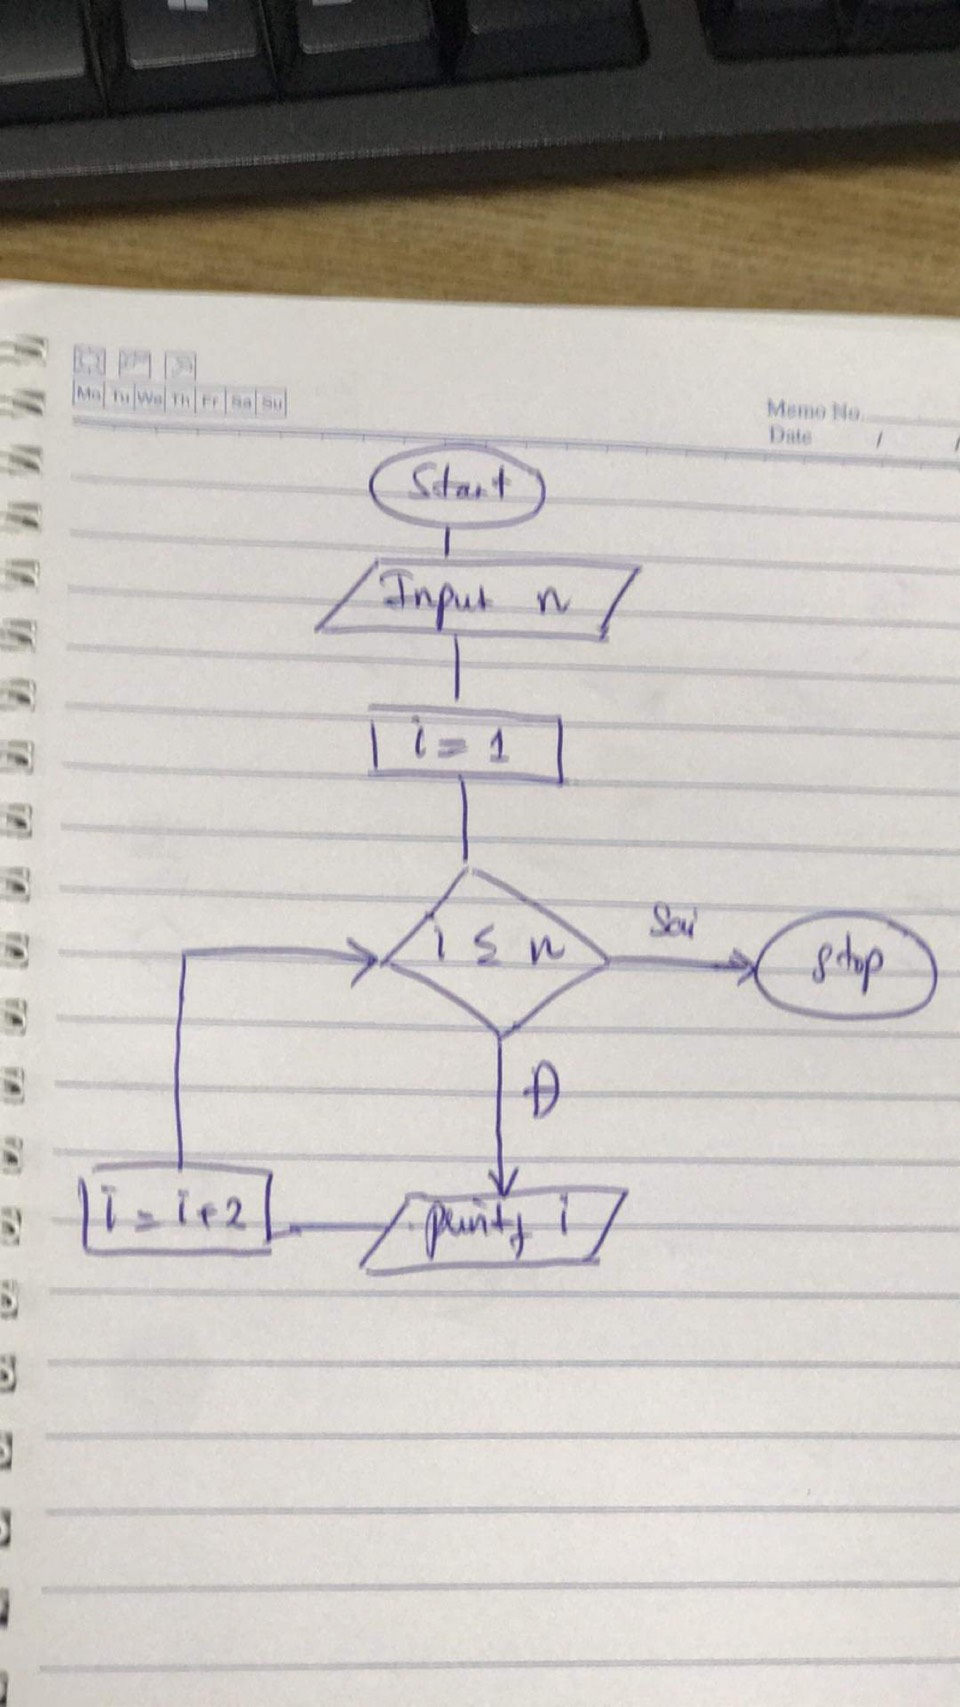 Mo Tu We Th Fr Sa Su
Memo No.
Date / /
Start
Input n
i = 1
i ≤ n
Sai
stop
Đ
printf i
i = i+2